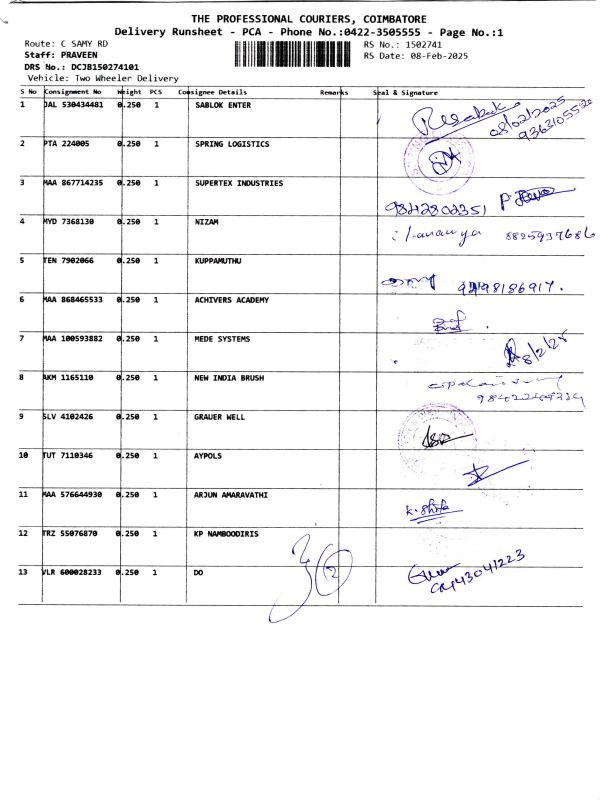 THE PROFESSIONAL COURIERS, COIMBATORE
Delivery Runsheet - PCA - Phone No.:0422-3505555 - Page No.:1
Route: C SAMY RD
RS No.: 1502741
Staff: PRAVEEN
RS Date: 08-Feb-2025
DRS No.: DCJB150274101
Vehicle: Two Wheeler Delivery
S No Consignment No Weight PCS Consignee Details Remarks Seal & Signature
1 JAL 530434481 0.250 1 SABLOK ENTER
08/02/2025
9363105520
2 PTA 224005 0.250 1 SPRING LOGISTICS
3 MAA 867714235 0.250 1 SUPERTEX INDUSTRIES
9842802351
4 MYD 7368130 0.250 1 NIZAM
8825937686
5 TEN 7902066 0.250 1 KUPPAMUTHU
6 MAA 868465533 0.250 1 ACHIVERS ACADEMY
7 MAA 100593882 0.250 1 MEDE SYSTEMS
8/2/25
8 AKM 1165110 0.250 1 NEW INDIA BRUSH
9 SLV 4102426 0.250 1 GRAUER WELL
10 TUT 7110346 0.250 1 AYPOLS
11 MAA 576644930 0.250 1 ARJUN AMARAVATHI
12 TRZ 55076870 0.250 1 KP NAMBOODIRIS
13 VLR 600028233 0.250 1 DO
2